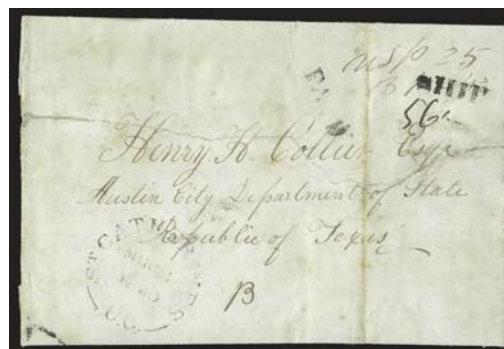 USP 25
B
PAID
SHIP
56
Henry H. Collier Esqr
Austin City Department of State
Republic of Texas
ST CATHERINES
U.C.
B